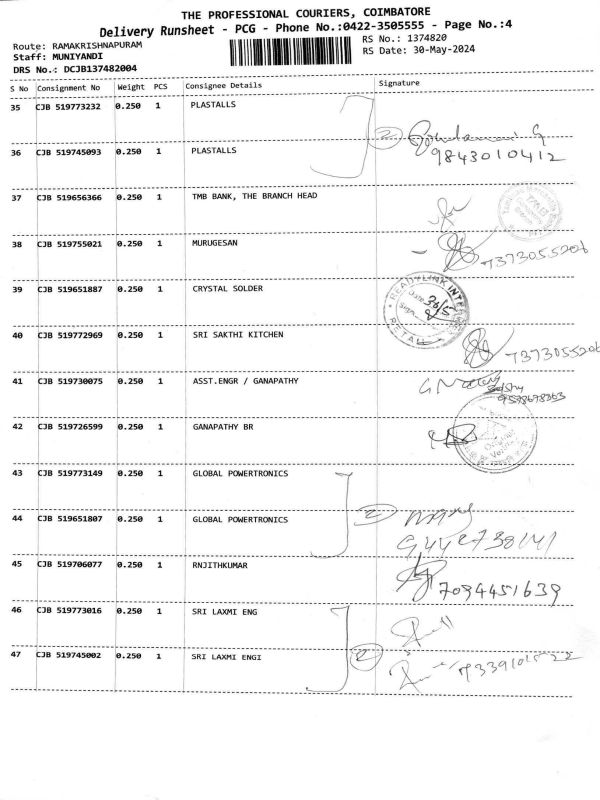 THE PROFESSIONAL COURIERS, COIMBATORE
Delivery Runsheet - PCG - Phone No.:0422-3505555 - Page No.:4
Route: RAMAKRISHNAPURAM
RS No.: 1374820
Staff: MUNIYANDI
RS Date: 30-May-2024
DRS No.: DCJB137482004
S No Consignment No Weight PCS Consignee Details Signature
35 CJB 519773232 0.250 1 PLASTALLS
2
9843010412
36 CJB 519745093 0.250 1 PLASTALLS
37 CJB 519656366 0.250 1 TMB BANK, THE BRANCH HEAD
38 CJB 519755021 0.250 1 MURUGESAN
7373055206
39 CJB 519651887 0.250 1 CRYSTAL SOLDER
READYLINK
30/5
RETAIL
40 CJB 519772969 0.250 1 SRI SAKTHI KITCHEN
7373055206
41 CJB 519730075 0.250 1 ASST.ENGR / GANAPATHY
42 CJB 519726599 0.250 1 GANAPATHY BR
43 CJB 519773149 0.250 1 GLOBAL POWERTRONICS
2
44 CJB 519651807 0.250 1 GLOBAL POWERTRONICS
45 CJB 519706077 0.250 1 RNJITHKUMAR
7094451639
46 CJB 519773016 0.250 1 SRI LAXMI ENG
2
47 CJB 519745002 0.250 1 SRI LAXMI ENGI